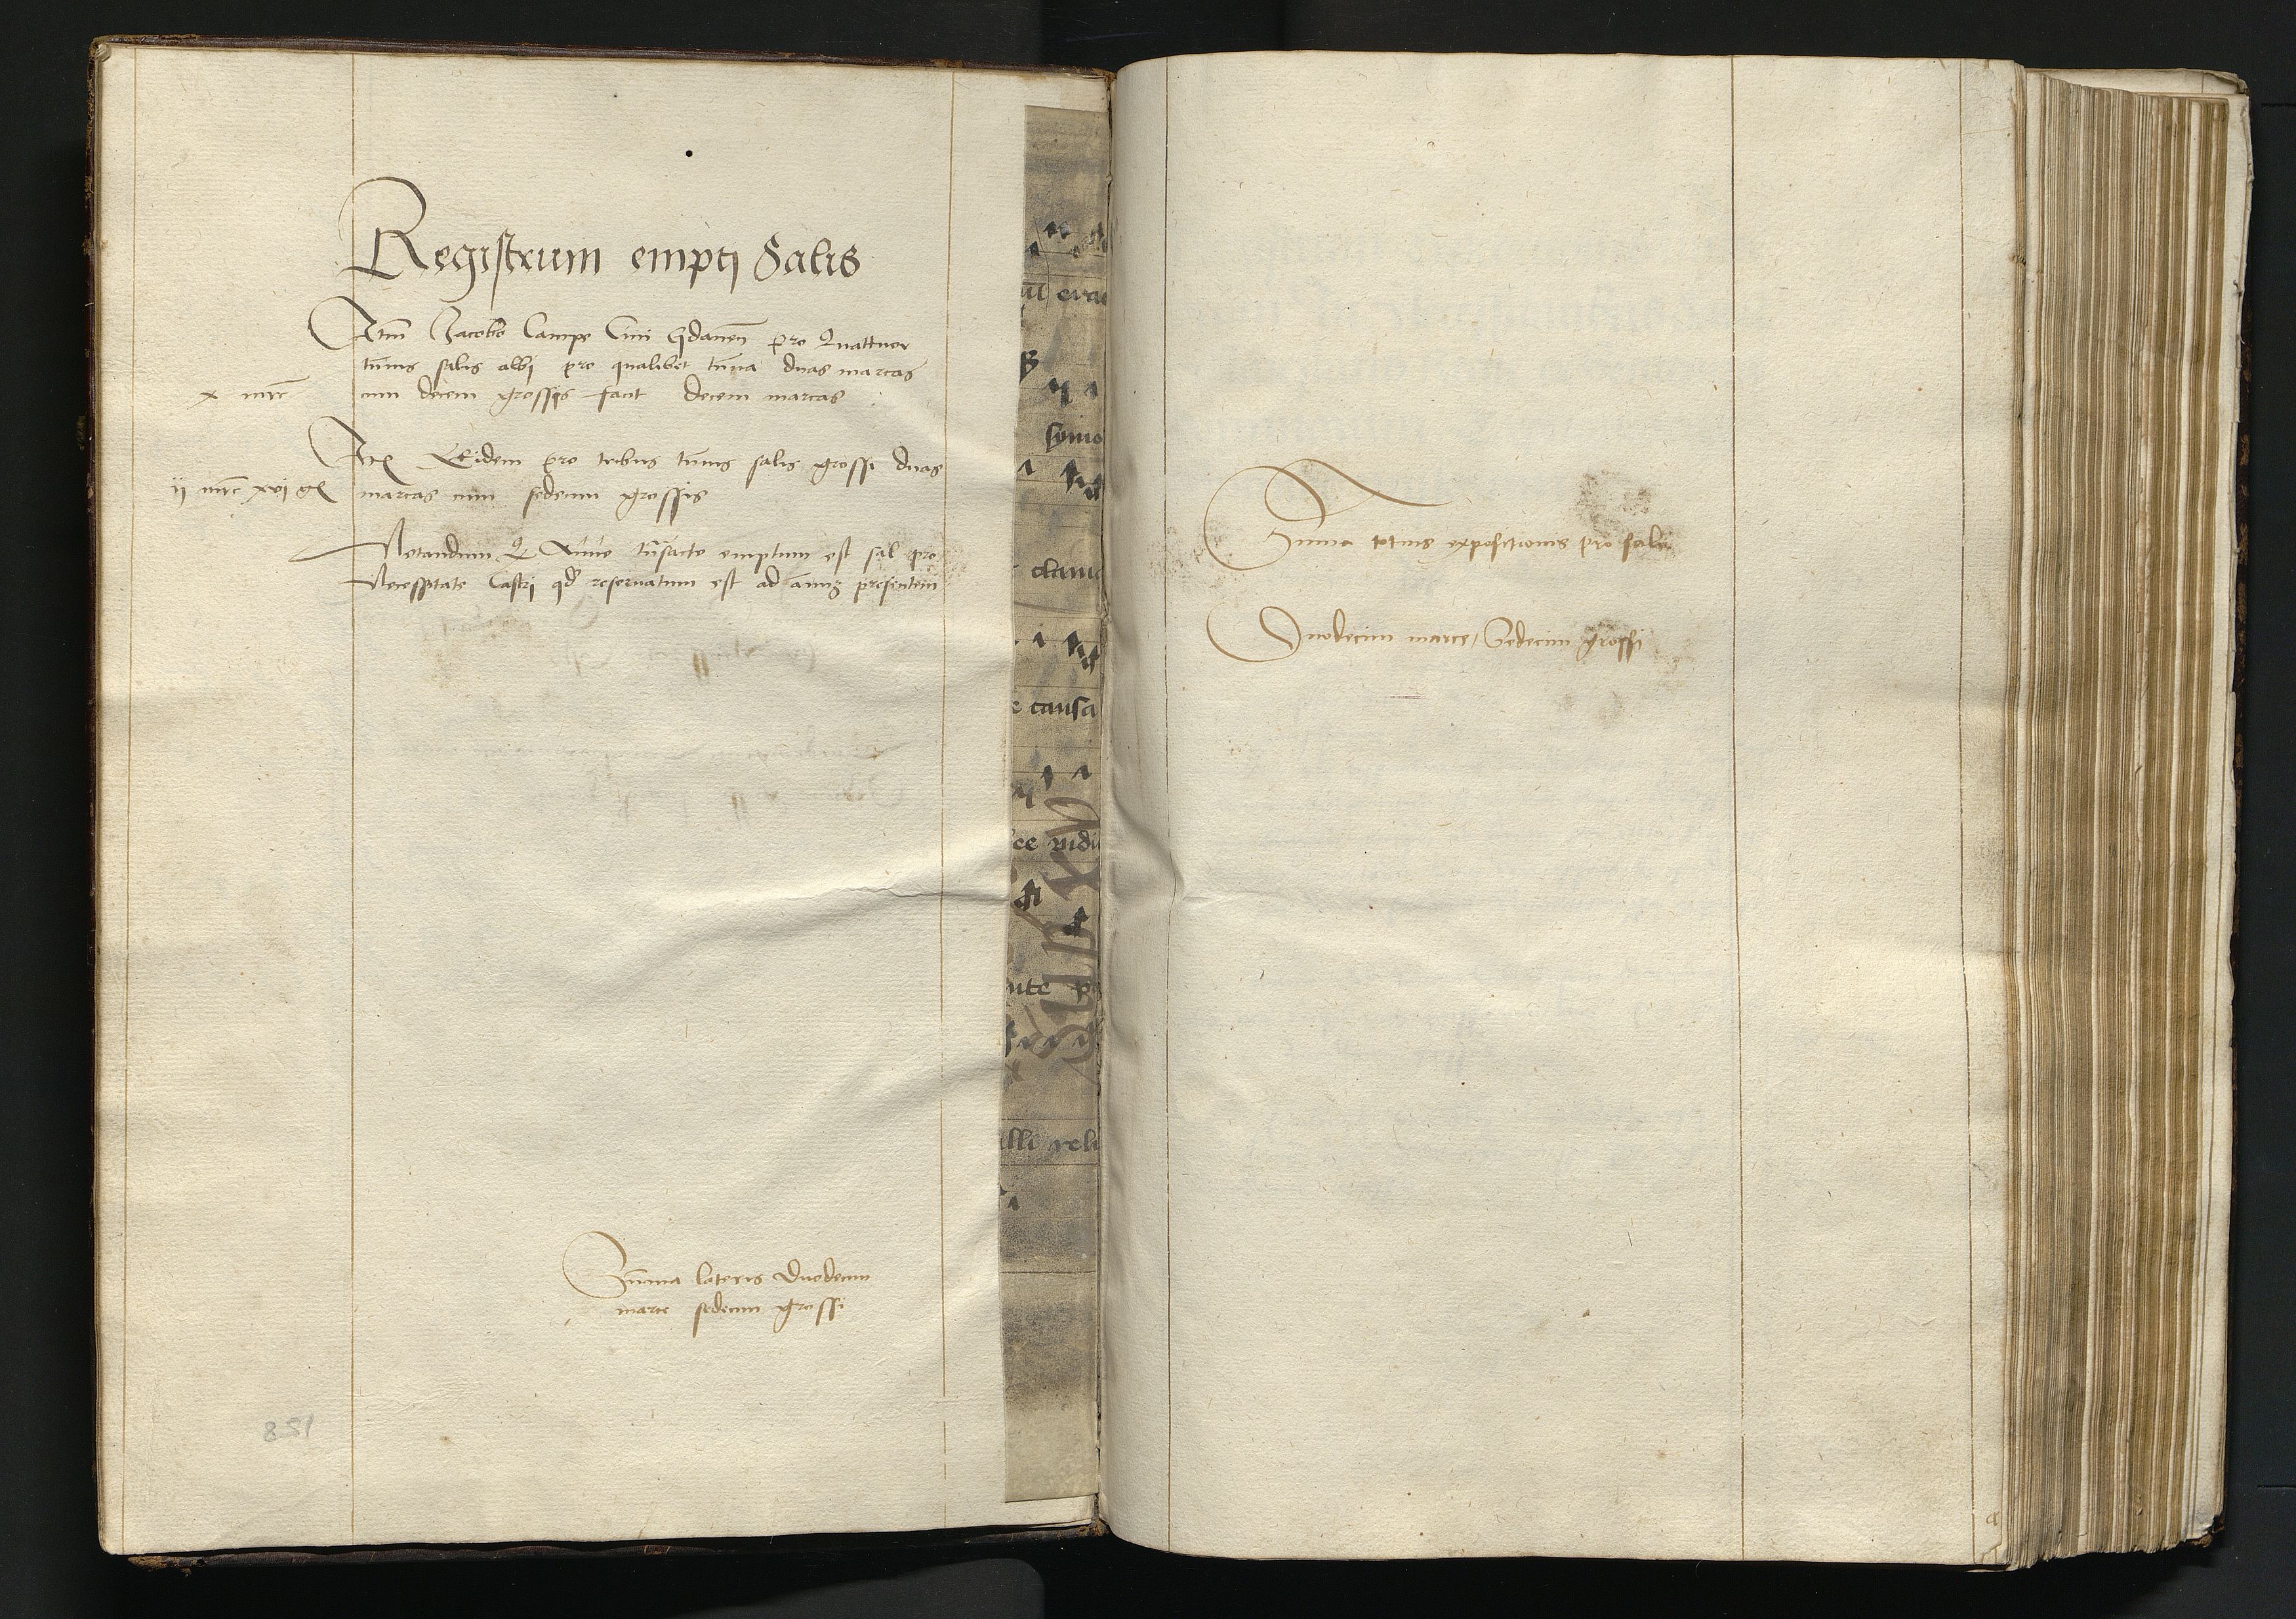 Registrum empti Salis
Itm Jacobo Campe Civi Gdanen pro Quattuor
tunnis salis albi pro qualibet tunna duas marcas
x mrc cum decem grossis facit decem marcas
Item Eidem pro tribus tunnis salis grossi duas
ij mrc xvi g marcas cum sedecim grossis
Notandum Anno emptum est sal pro
Necessitate Castri qd reservatum est ad annum presentem
Summa lateris Duodecim
marce sedecim grossi
158
erac
symo
clam
e causa
ee vidi
ute p
illi reli
Summa totius expositionis pro sale
Duodecim marce, Sedecim grossi